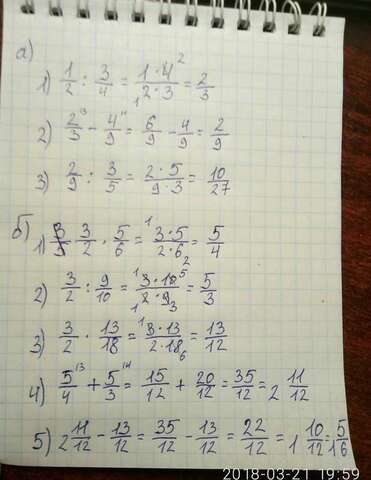 а)
1) 1/2 : 3/4 = 1·4/2·3 = 2/3
2) 2/3 - 4/9 = 6/9 - 4/9 = 2/9
3) 2/9 : 3/5 = 2·5/9·3 = 10/27
б)
1) 3/2 · 5/6 = 3·5/2·6 = 5/4
2) 3/2 : 9/10 = 3·10/2·9 = 5/3
3) 3/2 · 13/18 = 3·13/2·18 = 13/12
4) 5/4 + 5/3 = 15/12 + 20/12 = 35/12 = 2 11/12
5) 2 11/12 - 13/12 = 35/12 - 13/12 = 22/12 = 1 10/12 = 1 5/6
2018-03-21 19:59